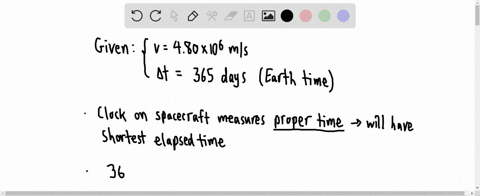 Given: { v = 4.80x10⁶ m/s
Δt = 365 days (Earth time)
· Clock on spacecraft measures proper time → will have
shortest elapsed time
· 36